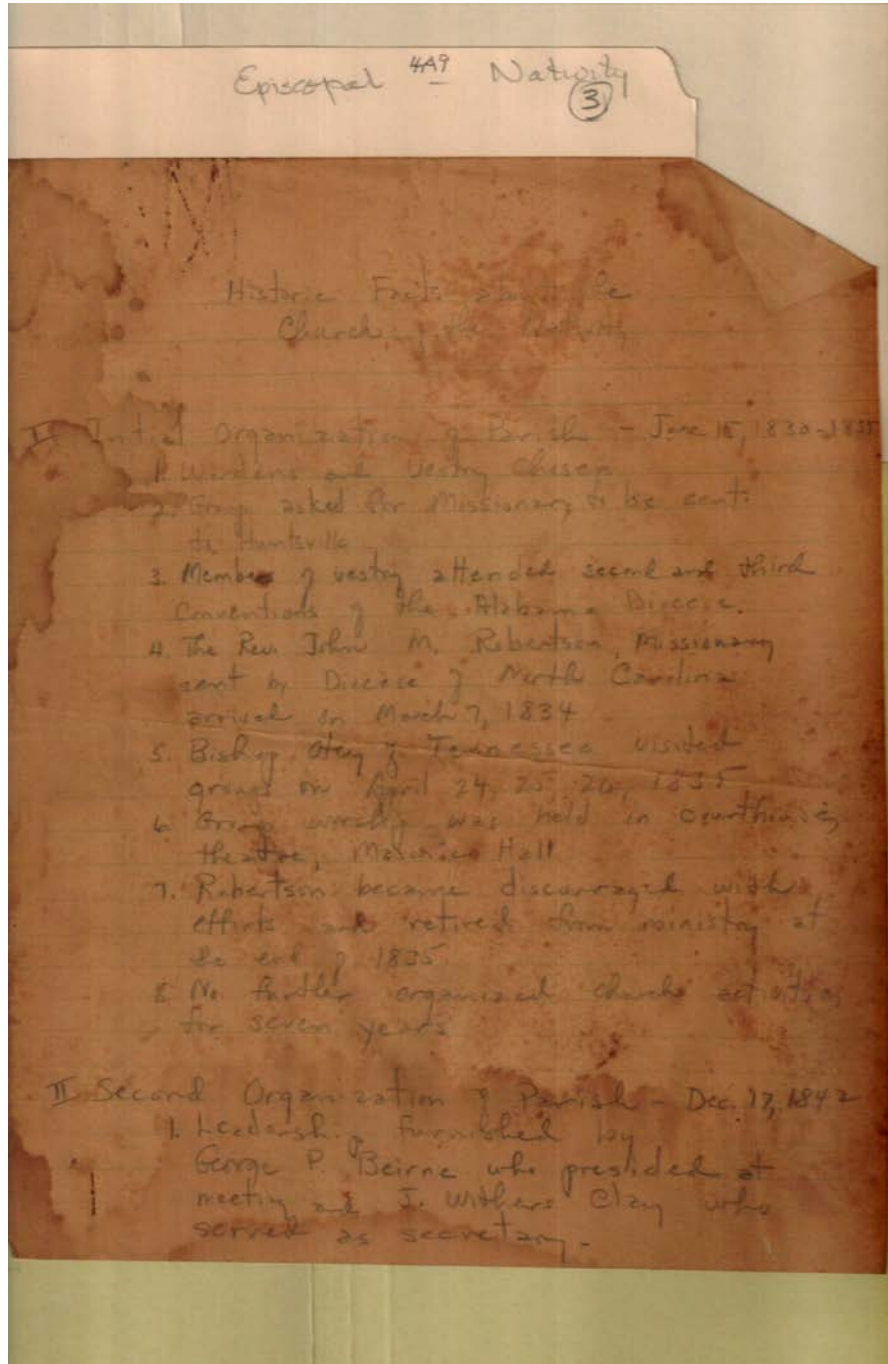 Episcopal 4A9 Nativity
3
Historic Facts about the
Church of the Nativity
I Initial Organization of Parish - June 15, 1830-1835
1. Wardens and Vestry Chosen
2. Group asked for Missionary to be sent
to Huntsville
3. Members of vestry attended second and third
Conventions of the Alabama Diocese.
4. The Rev. John M. Robertson, Missionary
sent by Diocese of North Carolina
arrived on March 7, 1834
5. Bishop Otey of Tennessee visited
group on April 24, 25 26, 1835
6 Group worship was held in courthouse,
theatre, Masonic Hall
7. Robertson became discouraged with
efforts and retired from ministry at
the end of 1835
8 No further organized church activities
for seven years
II Second Organization of Parish - Dec. 17, 1842
1. Leadership furnished by
George P. Beirne who presided at
meeting and J. Withers Clay who
served as secretary.